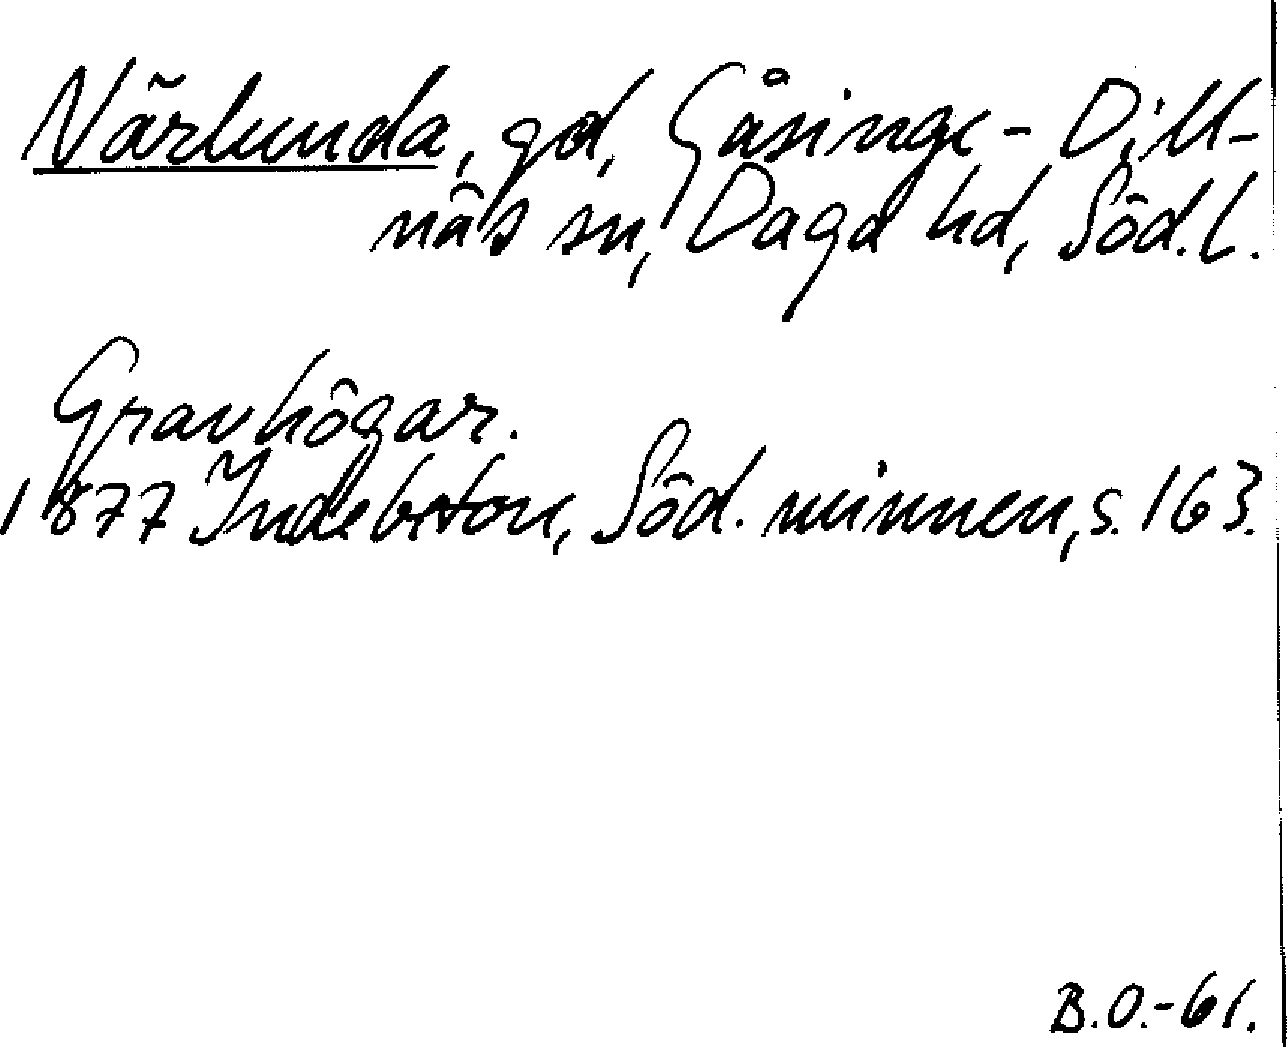 Närlunda, gd, Gåsinge-Dill-
näs sn, Daga hd, Söd.l.
Gravhögar.
1877 Indebetou, Söd. minnen, s. 163.
B.O.-61.